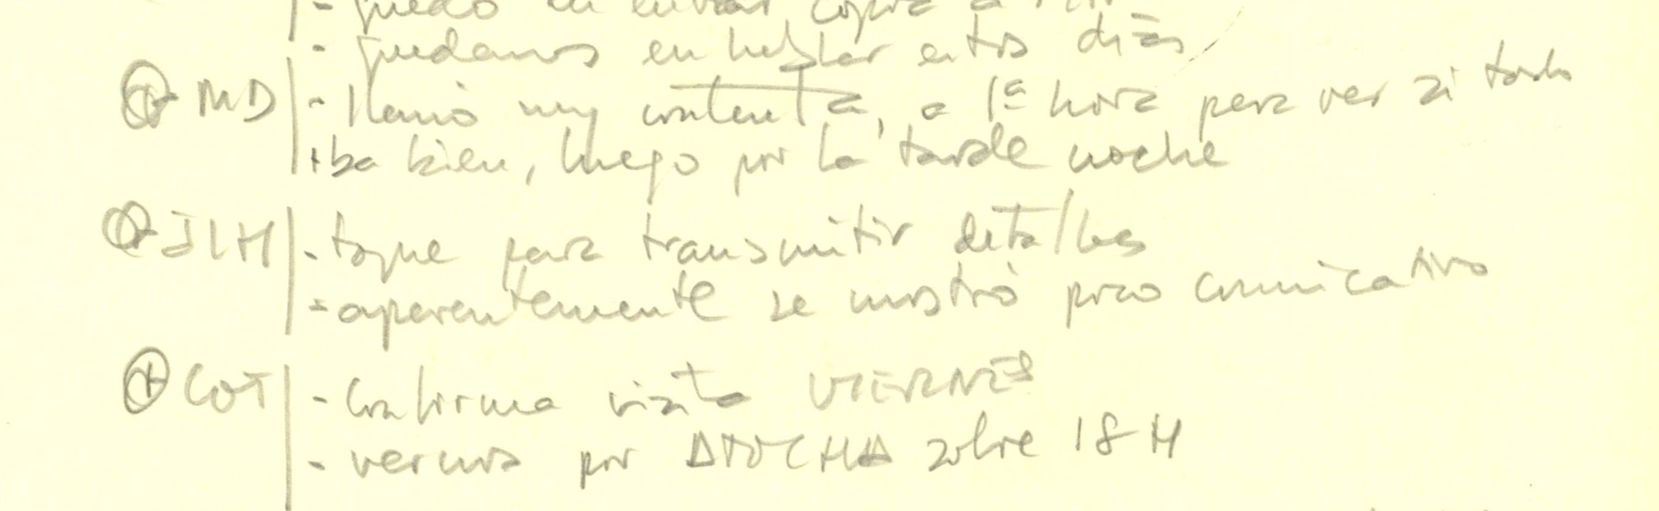 - quedó en enviar copia a
- quedamos en hablar estos días
⊕ MD - llamó muy contenta, a 1ª hora para ver si todo
iba bien, luego por la tarde noche
JLM - toque para transmitir detalles
- aparentemente se mostró poco comunicativo
⊕ COT - Confirma visita VIERNES
- vernos por ATOCHA sobre 18 H